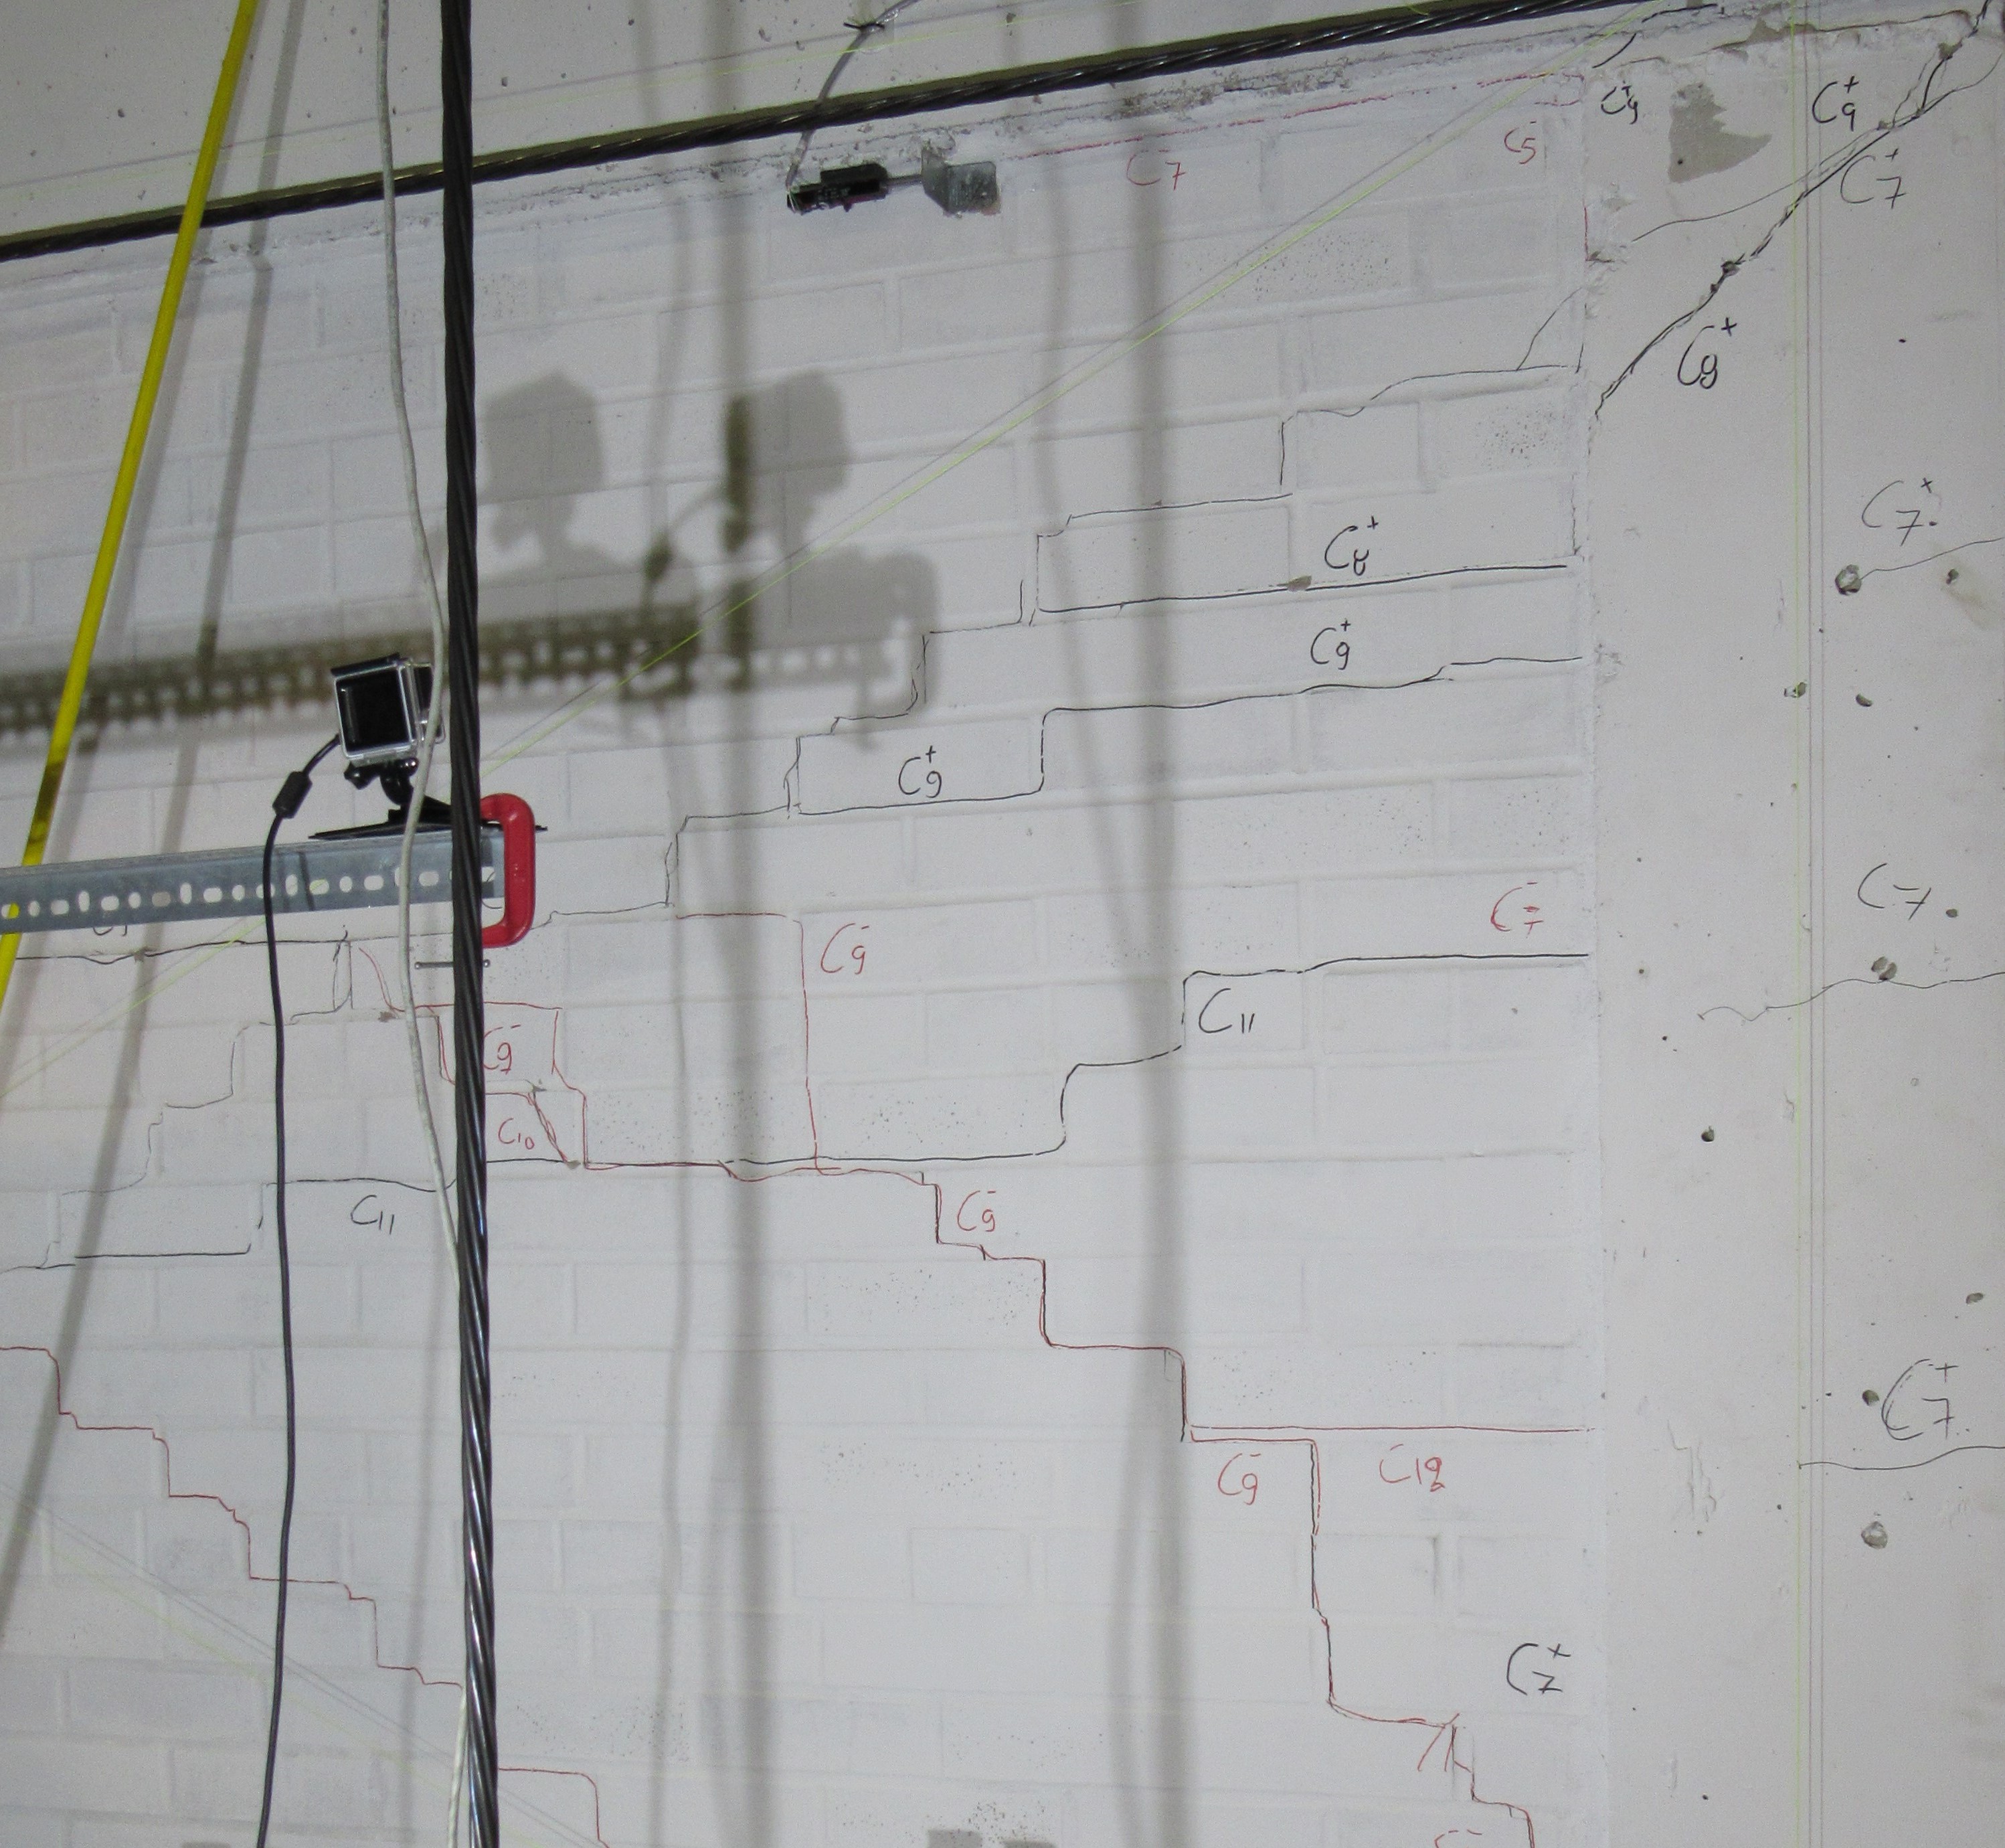 C₉⁺
C₅⁻
C₇⁻
C₇⁺
C₉⁺
C₇⁺
C₈⁺
C₉⁺
C₉⁺
C₇
C₇⁻
C₉⁻
C₁₁
C₉⁻
C₁₀
C₁₁
C₉⁻
C₇⁺
C₉⁻
C₇⁺